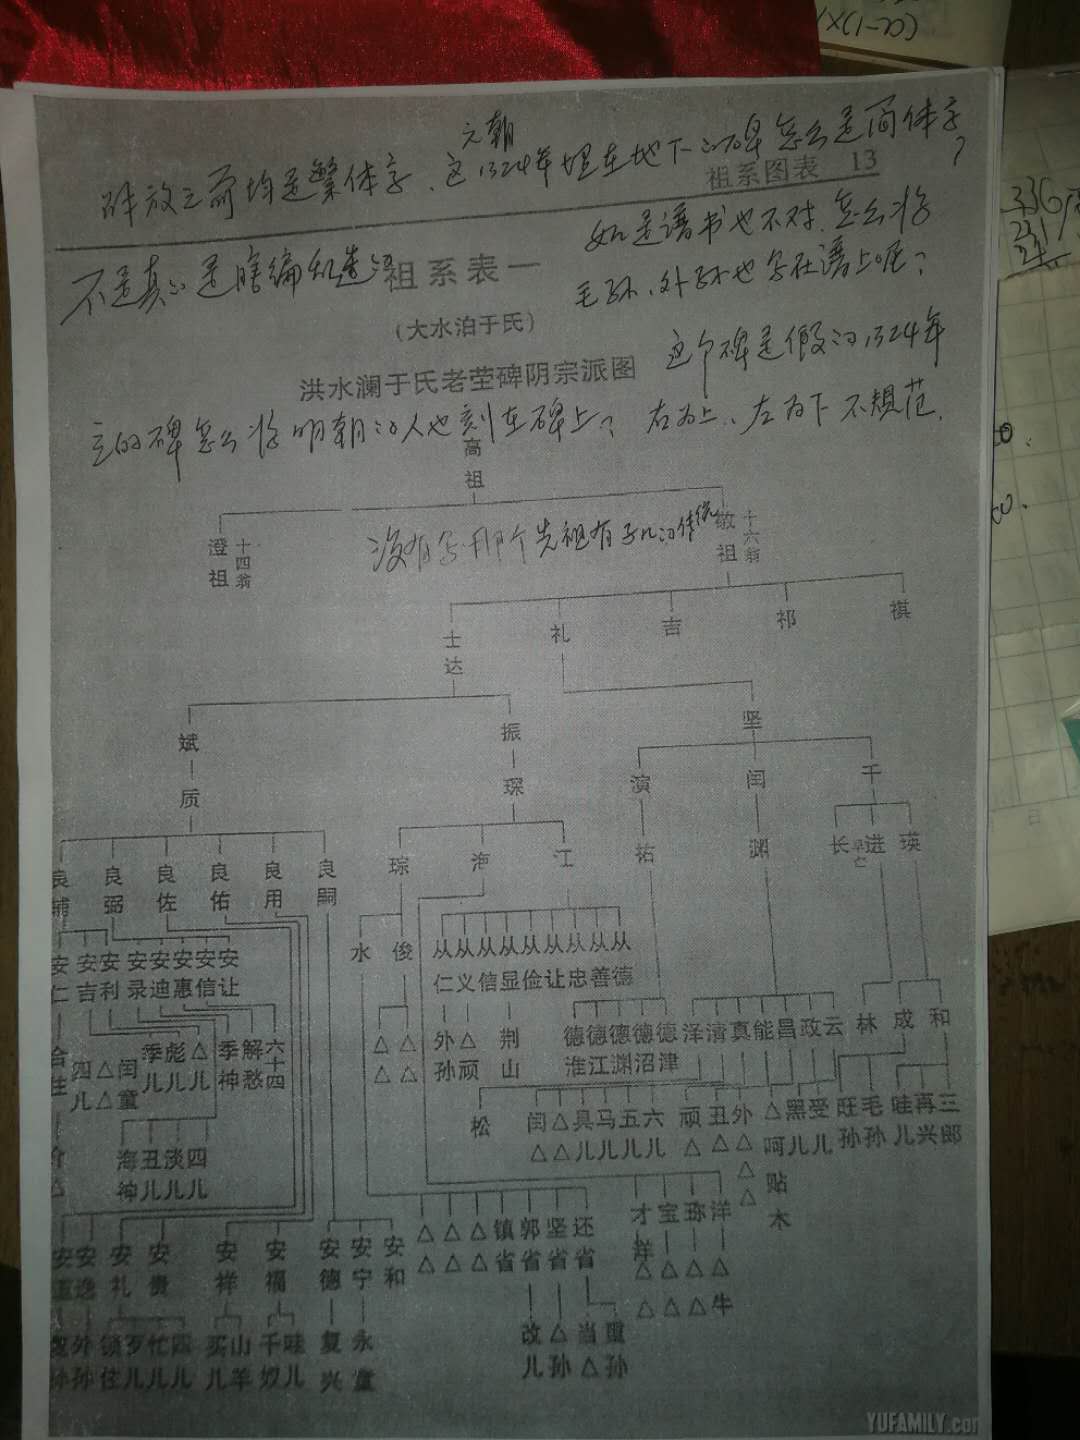 X(1-20)
元朝
碑放之前均是繁体字、这1324年埋在地下的碑怎么是简体字?
祖系图表 13
如是谱书也不对、怎么将
不是真的是瞎编乱造的
祖系表一
毛孙、外孙也写在谱上呢?
(大水泊于氏)
这个碑是假的1324年
洪水澜于氏老茔碑阴宗派图
立的碑怎么将明朝的人也刻在碑上? 右为上、左为下不规范.
高祖
澄祖 十四翁
没有写那个先祖有子几的传统
敬祖 十六翁
士达 礼 吉 祁 祺
斌 振 坚
质 琛 演 闰 千
良辅 良弼 良佐 良佑 良用 良嗣 琮 海 江 祐 渊 长 早亡 进 瑛
安仁 安吉 安利 安录 安迪 安惠 安信 安让 水 俊 从仁 从义 从信 从显 从俭 从让 从忠 从善 从德
△△ △△ 外孙 △顽 荆山 德淮 德江 德渊 德沼 德津 泽 清 真 能 昌 政 云 林 成 和
四儿 △△ 闰童 季儿 彪儿 △儿 季神 解愁 六十四
松 闰△ △△ 具儿 马儿 五儿 六儿 顽△ 丑△ 外△△△ △呵贴木 黑儿 受儿 旺孙 毛孙 哇儿 再兴 三郎
海神 丑儿 淡儿 四儿
△△ △△ △△ 镇省 郭省 坚省 还省 才 宝 珎 洋
安逸 安礼 安贵 安祥 安福 安德 安宁 安和
△ △ △ △
△ △ △ 牛
外孙 锁住 歹儿 忙儿 四儿 买儿 山羊 千奴 哇儿 复兴 永童 改儿 △孙 当△ 重孙
YUFAMILY.com